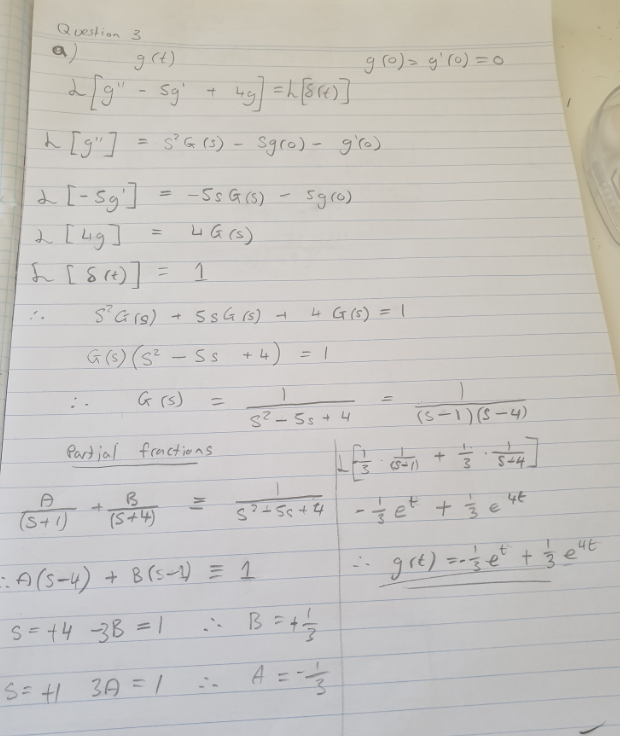 Question 3
a) g(t) g(0) = g'(0) = 0
L[g'' - 5g' + 4g] = L[δ(t)]
L[g''] = s²G(s) - sg(0) - g'(0)
L[-5g'] = -5sG(s) - 5g(0)
L[4g] = 4G(s)
L[δ(t)] = 1
∴ s²G(s) + 5sG(s) + 4G(s) = 1
G(s)(s² - 5s + 4) = 1
∴ G(s) = 1/(s² - 5s + 4) = 1/((s-1)(s-4))
Partial fractions
A/(s+1) + B/(s+4) ≡ 1/(s²+5s+4)
∴ A(s-4) + B(s-1) ≡ 1
s = +4 -3B = 1 ∴ B = +1/3
s = +1 3A = 1 ∴ A = -1/3
L[1/3 · 1/(s-1) + 1/3 · 1/(s-4)]
-1/3 e^t + 1/3 e^4t
∴ g(t) = -1/3 e^t + 1/3 e^4t